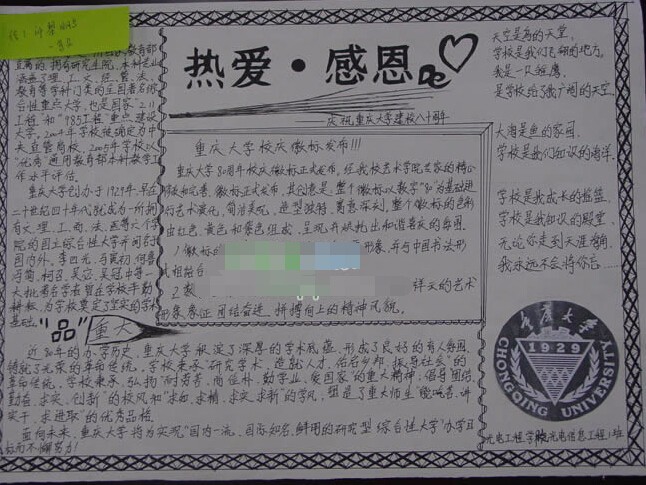 热爱·感恩
庆祝重庆大学建校八十周年
直属的、拥有研究生院、本科专业
涵盖了理、工、文、经、管、法、
教育等学科门类的全国著名综
合性重点大学，也是国家"211
工程"和"985工程"重点建设
大学。2004年学校被确定为中
央直管高校，2005年学校以
"优秀"通过教育部本科教学工
作水平评估。
重庆大学创办于1929年，早在
二十世纪四十年代就成为一所拥
有文、理、工、商、法、医等六个学
院的国立综合性大学并闻名于
国内外。李四光、马寅初、何鲁
冯简、柯召、吴宓、吴冠中等一
大批著名学者曾在学校
基础。
"品"重大
重庆大学校庆徽标发布!!!
重庆大学80周年校庆徽标正式发布，经我校艺术学院
徽标正式发布，其创意是，整个徽标以数字"80"为基础进
行艺术演化，简洁美观，造型独特，寓意深刻，整个徽标的色彩
由红色、黄色和紫色组成，呈现并烘托出和谐喜庆的氛围。
1.徽标的 形象，并与中国书法形
式相结合
2. 祥天的艺术
形象，象征团结奋进、拼搏向上的精神风貌。
天空是鸟的天堂，
学校是我们飞翔的地方。
我是一只雏鹰，
是学校给了我广阔的天空。
大海是鱼的家园，
学校是我们知识的海洋。
学校是我成长的摇篮，
学校是我知识的殿堂，
无论你走到天涯海角，
我永远不会将你忘……
重庆大学
1929
CHONGQING UNIVERSITY
近80年的办学历史，重庆大学积淀了深厚的学术底蕴，形成了良好的育人氛围，
铸就了光荣的革命传统。学校秉承"研究学术、造就人才、佑启乡邦、振导社会"的
革命传统，学校秉承、弘扬"耐劳苦、尚俭朴、勤学业、爱国家"的重大精神，倡导团结、
勤奋、求实、创新"的校风和"求知、求精、求实、求新"的学风，塑造了重大师生"能吃苦、讲
实干、求进取"的优秀品格。
面向未来，重庆大学将为实现"国内一流、国际知名、鲜明的研究型综合性大学"办学目
标而不懈努力！
光电工程学院光电信息工程1班